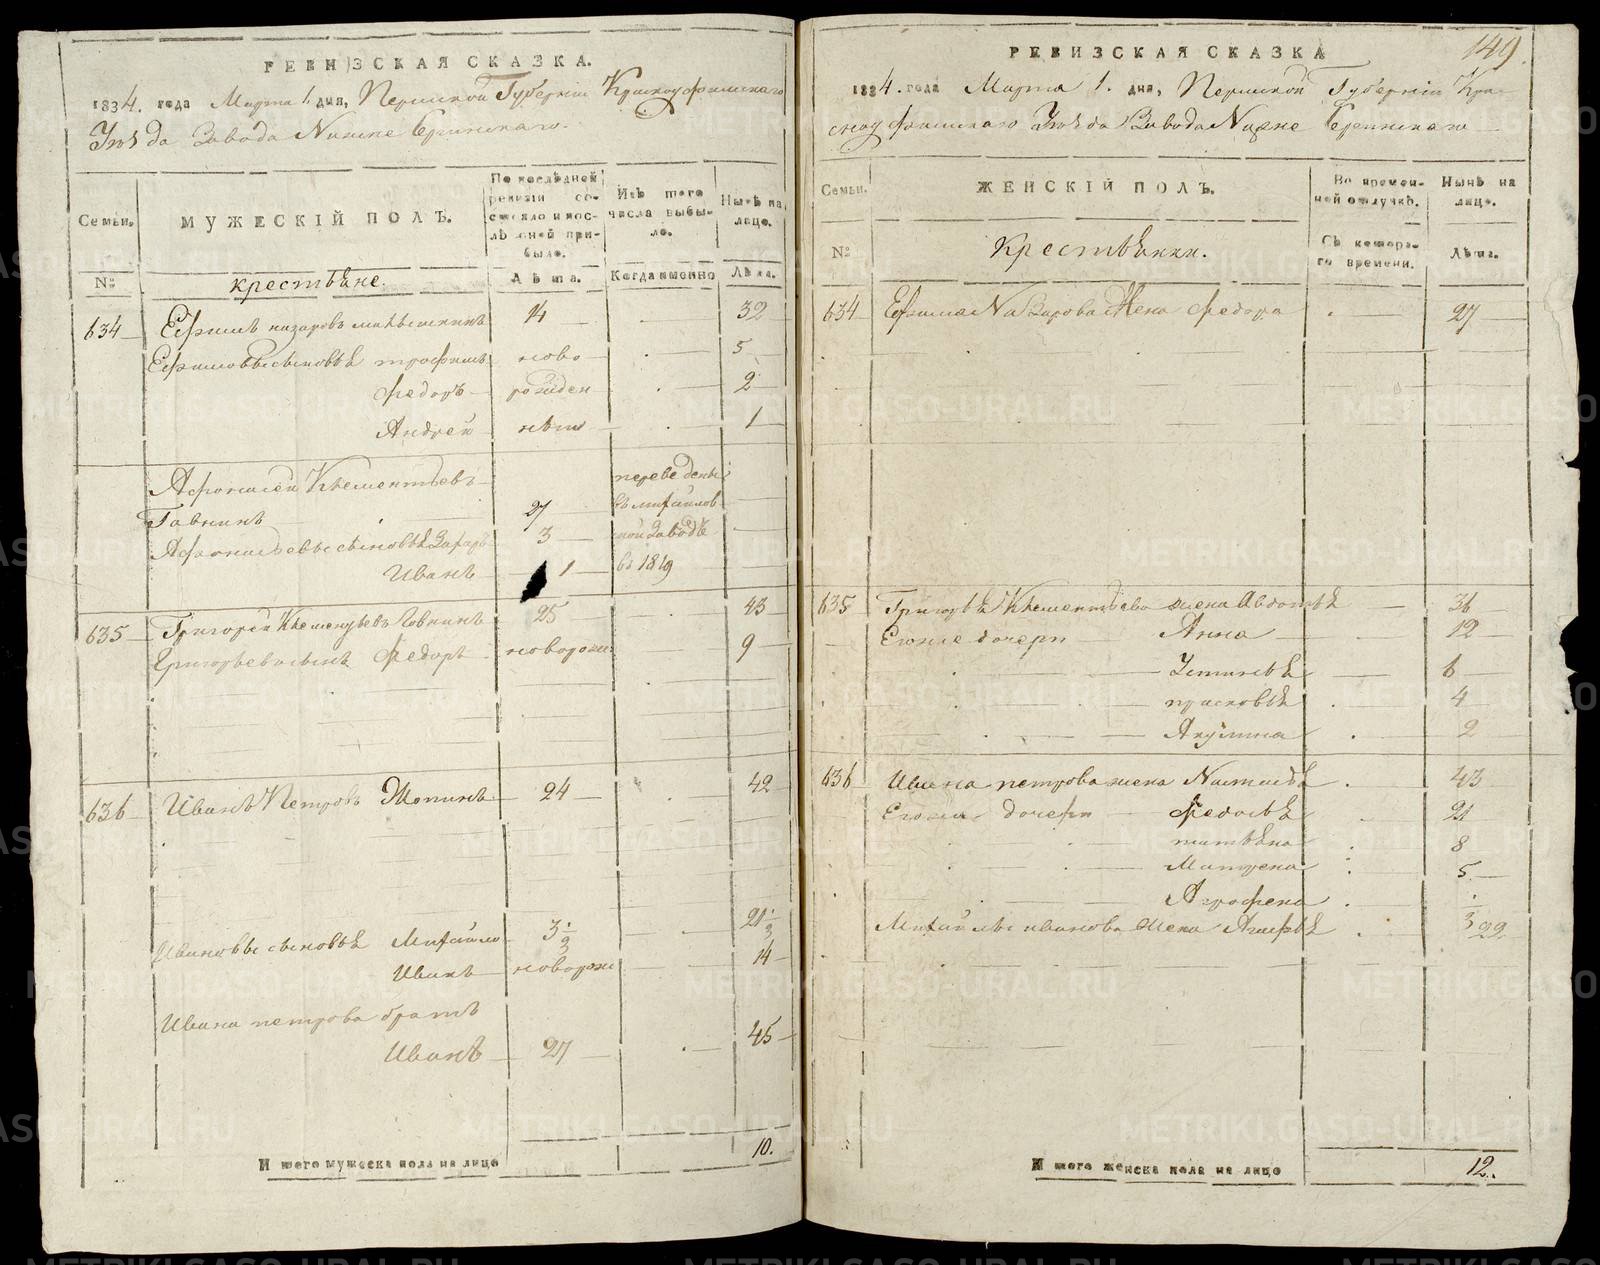 РЕВИЗСКАЯ СКАЗКА.
1834. года Марта 1. дня, Пермской Губернiи Красноуфимскаго
Уѣзда Завода Нижне Сергинскаго.
Семьи.
МУЖЕСКIЙ ПОЛЪ.
По послѣдней ревизiи состояло и послѣ оной прибыло.
Изъ того числа выбыло.
Нынѣ на лицо.
№
крестьяне.
Лѣта.
Когда именно
Лѣта.
634 Ефимъ Назаровъ 14 32
Ефимовы сыновья трофимъ ново 5
Федоръ рожден 2
Андрей нѣты 1
Афонасей Клементьевъ переведены
27 въ михайлов
Афонасьевы сыновья Захаръ 3 ской Заводъ
Иванъ 1 въ 1819
635 Григорей Клементьевъ 25 43
Григорьева сынъ Федоръ новорожд 9
636 Иванъ Петровъ 24 42
Ивановы сыновья Михайло 3 1/2 21 1/2
Иванъ новорож 14
Ивана петрова братъ
Иванъ 27 45
Итого мужеска пола на лицо 10.
149.
РЕВИЗСКАЯ СКАЗКА
1834. года Марта 1. дня, Пермской Губернiи Кра-
сноуфимскаго Уѣзда Завода Нижне Сергинскаго
Семьи.
ЖЕНСКIЙ ПОЛЪ.
Во временной отлучкѣ.
Нынѣ на лицо.
№
Крестьянки.
Съ котораго времени.
Лѣта.
634 Ефима Назарова Жена Федора 27
635 Григорья Клементьева жена Авдотья 36
Егоже дочери Анна 12
Устинья 6
прасковья 4
Акулина 2
636 Ивана петрова жена Настасья 43
Егоже дочери Федосья 21
татьяна 8
Матрена 5
Аграфена
Михайлы иванова Жена 22
Итого женска пола на лицо 12.